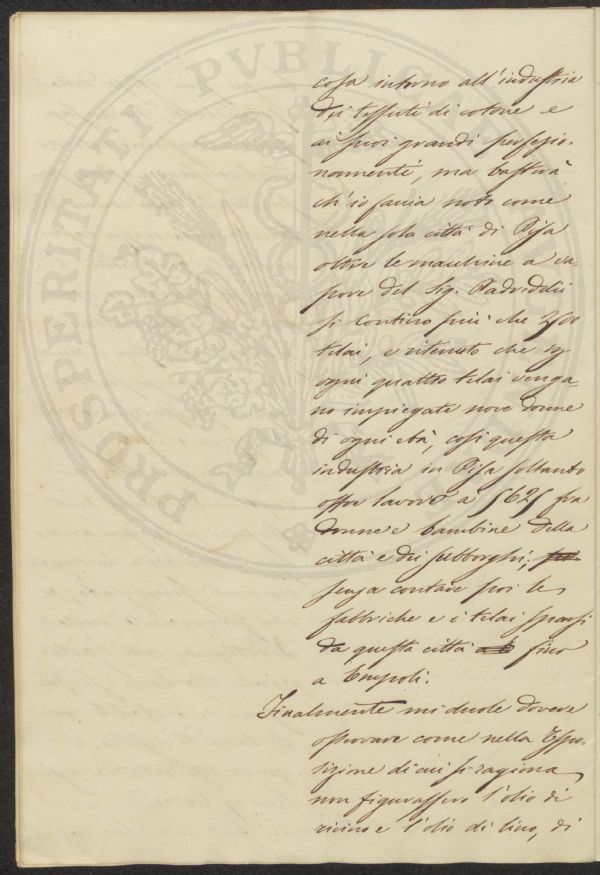 PROSPERITATI PVBLIC
cosa intorno all'industria
dei tessuti di cotone e
ai suoi grandi perfezio-
namenti, ma basterà
ch'io faccia noto come
nella sola città di Pisa
oltre le macchine a va-
pore del Sig. Padreddii
si contino più che 2500
telai, e ritenuto che in
ogni quattro telai venga-
no impiegate nove donne
di ogni età, così questa
industria in Pisa soltanto
offre lavoro a 5625 fra
donne e bambine della
città e dei subborghi,
senza contare poi le
fabbriche e i telai sparsi
da questa città fino
a Empoli.
Finalmente mi duole dovere
osservare come nella Espo-
sizione di cui si ragiona
non figurassero l'olio di
ricino e l'olio di lino, di